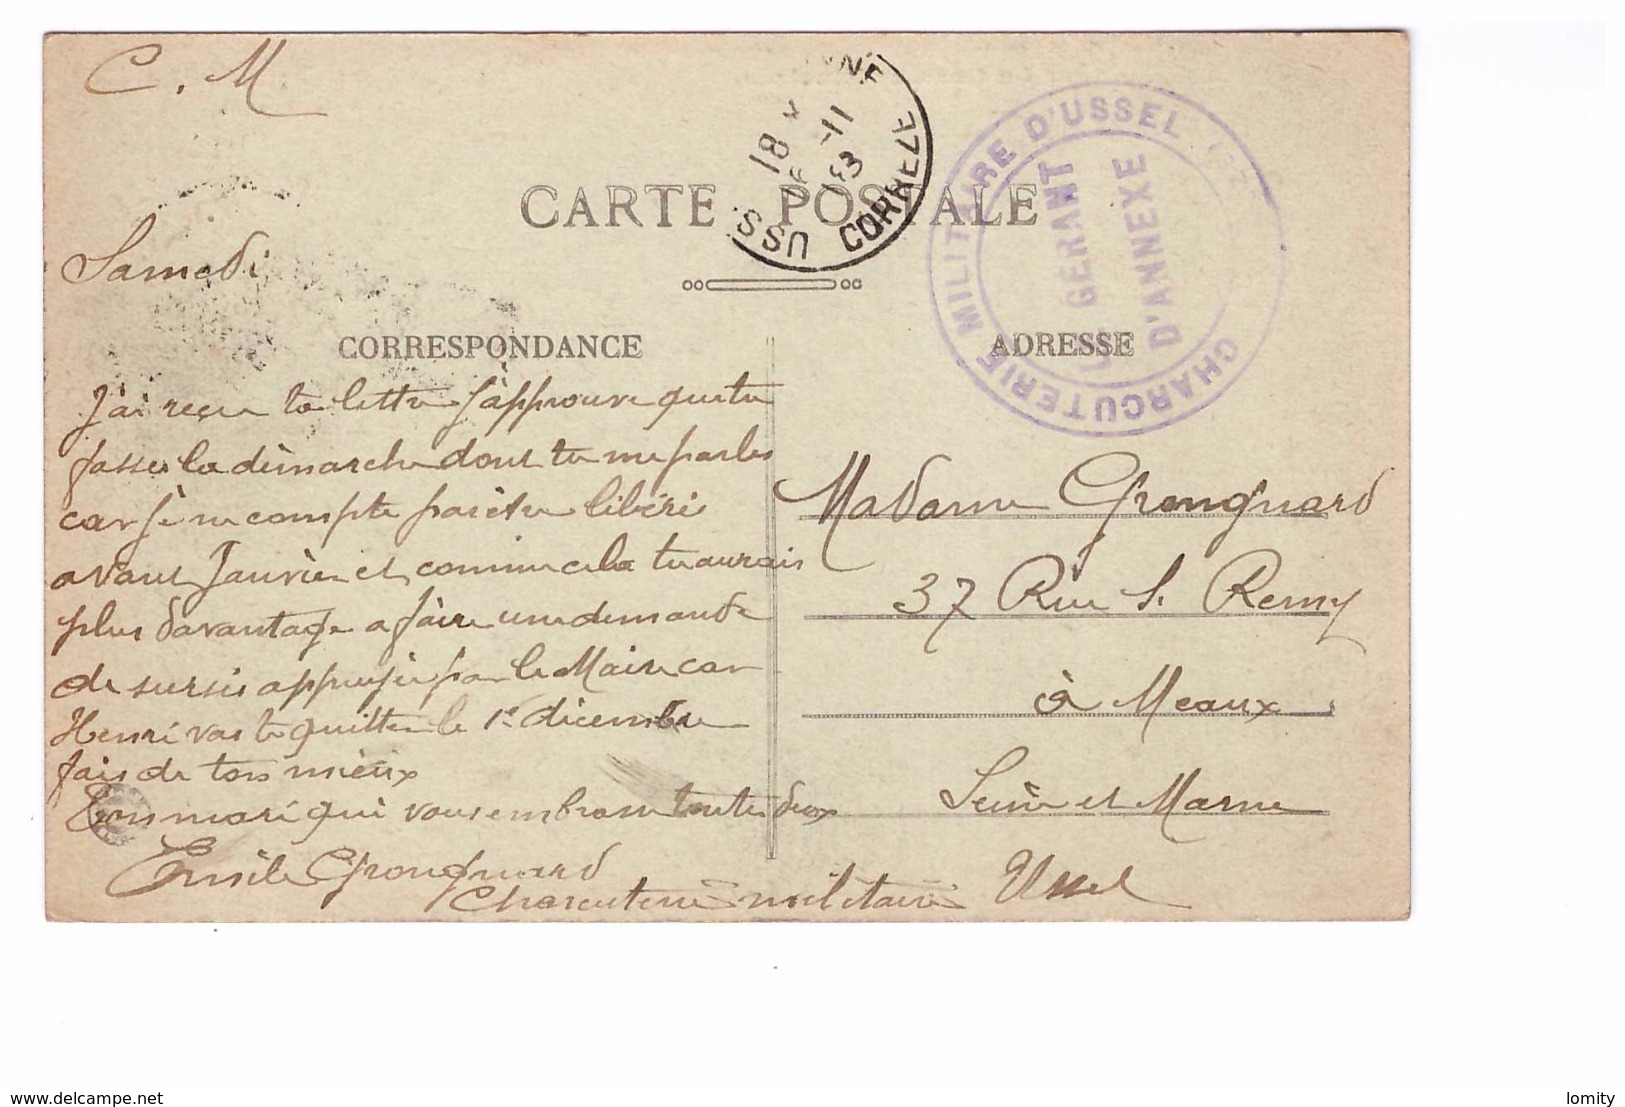 C. M
Samedi
CARTE POSTALE
USS CORRÈZE
18
11
CHARCUTERIE MILITAIRE D'USSEL
LE GERANT
D'ANNEXE
CORRESPONDANCE
ADRESSE
J'ai reçu ta lettre j'approuve que tu
fasses la démarche dont tu me parles
car je ne compte pas être libéré
avant Janvier et comme cela tu aurais
plus davantage a faire une demande
de sursis appuyée par le Maire car
Henri vas te quitter le 1er décembre
fais de ton mieux
Ton mari qui vous embrasse toutes deux
Emile Grongnard
Charcuterie militaire Ussel
Madame Grongnard
37 Rue St Remy
à Meaux
Seine et Marne
www.delcampe.net
lomity